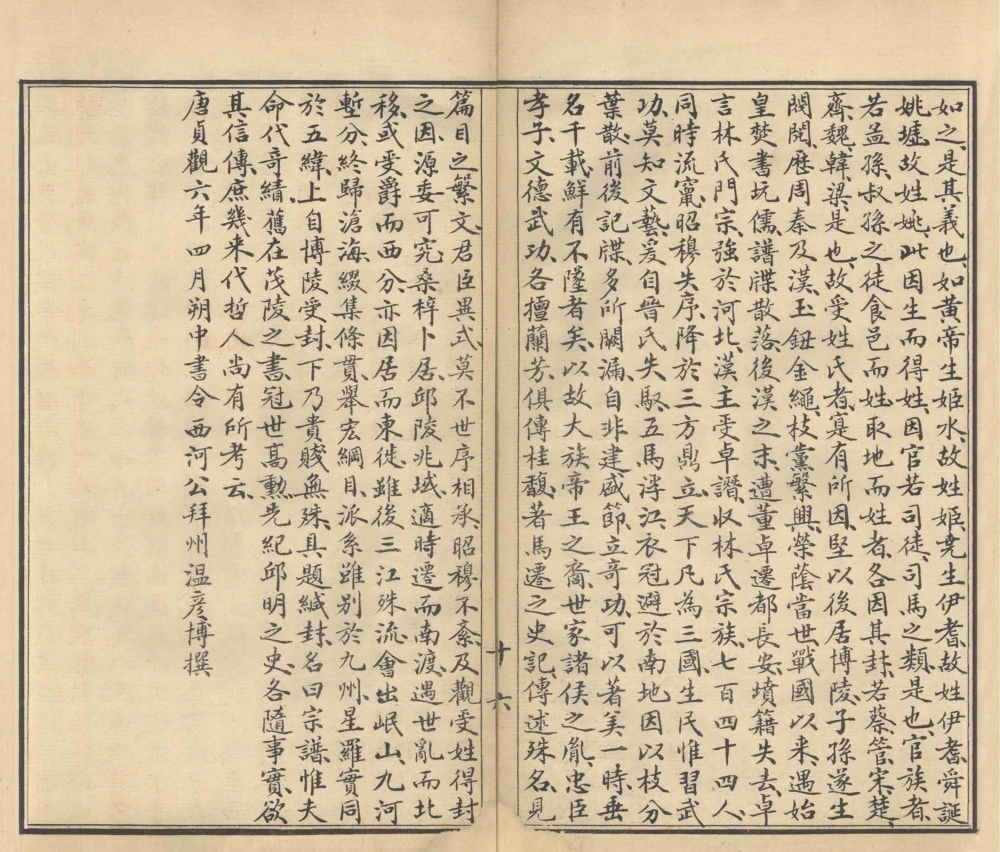 如之是其義也如黃帝生姬水故姓姬堯生伊耆故姓伊耆舜誕
姚墟故姓姚此因生而得姓因官若司徒司馬之類是也官族者
若孟孫叔孫之徒食邑而姓取地而姓者各因其封若蔡管宋楚
齊魏韓梁是也故受姓氏者寔有所因堅以後居博陵子孫遂生
閥閱歷周秦及漢玉鈕金繩枝黨繁興榮蔭當世戰國以來遇始
皇焚書坑儒譜牒散落後漢之末遭董卓遷都長安墳籍失去卓
言林氏門宗強於河北漢主受卓譖収林氏宗族七百四十四人
同時流竄昭穆失序降於三方鼎立天下凡為三國生民惟習武
功莫知文藝爰自晉氏失馭五馬浮江衣冠避於南地因以枝分
葉散前後記牒多所闕漏自非建盛節立奇功可以著美一時垂
名千載鮮有不墜者矣以故大族帝王之裔世家諸侯之胤忠臣
孝子文德武功各擅蘭芳俱傳桂馥著馬遷之史記傳述殊名見
十六
篇目之繁文君臣異式莫不世序相承昭穆不紊及觀受姓得封
之因源委可究桑梓卜居邱陵兆域適時遷而南渡遇世亂而北
移或受爵而西分亦因居而東徙雖後三江殊流會出岷山九河
塹分終歸滄海綴集條貫舉宏綱目派系雖別於九州星羅實同
於五緯上自博陵受封下乃貴賤無殊具題緘封名曰宗譜惟夫
命代奇績舊在茂陵之書冠世高勲先紀邱明之史各隨事實欲
其信傳庶幾來代哲人尚有所考云
唐貞觀六年四月朔中書令西河公拜州溫彦博撰